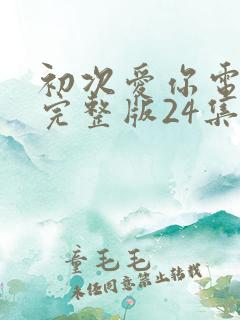 初次爱你电
完整版24集
童毛毛
未经同意禁止转载